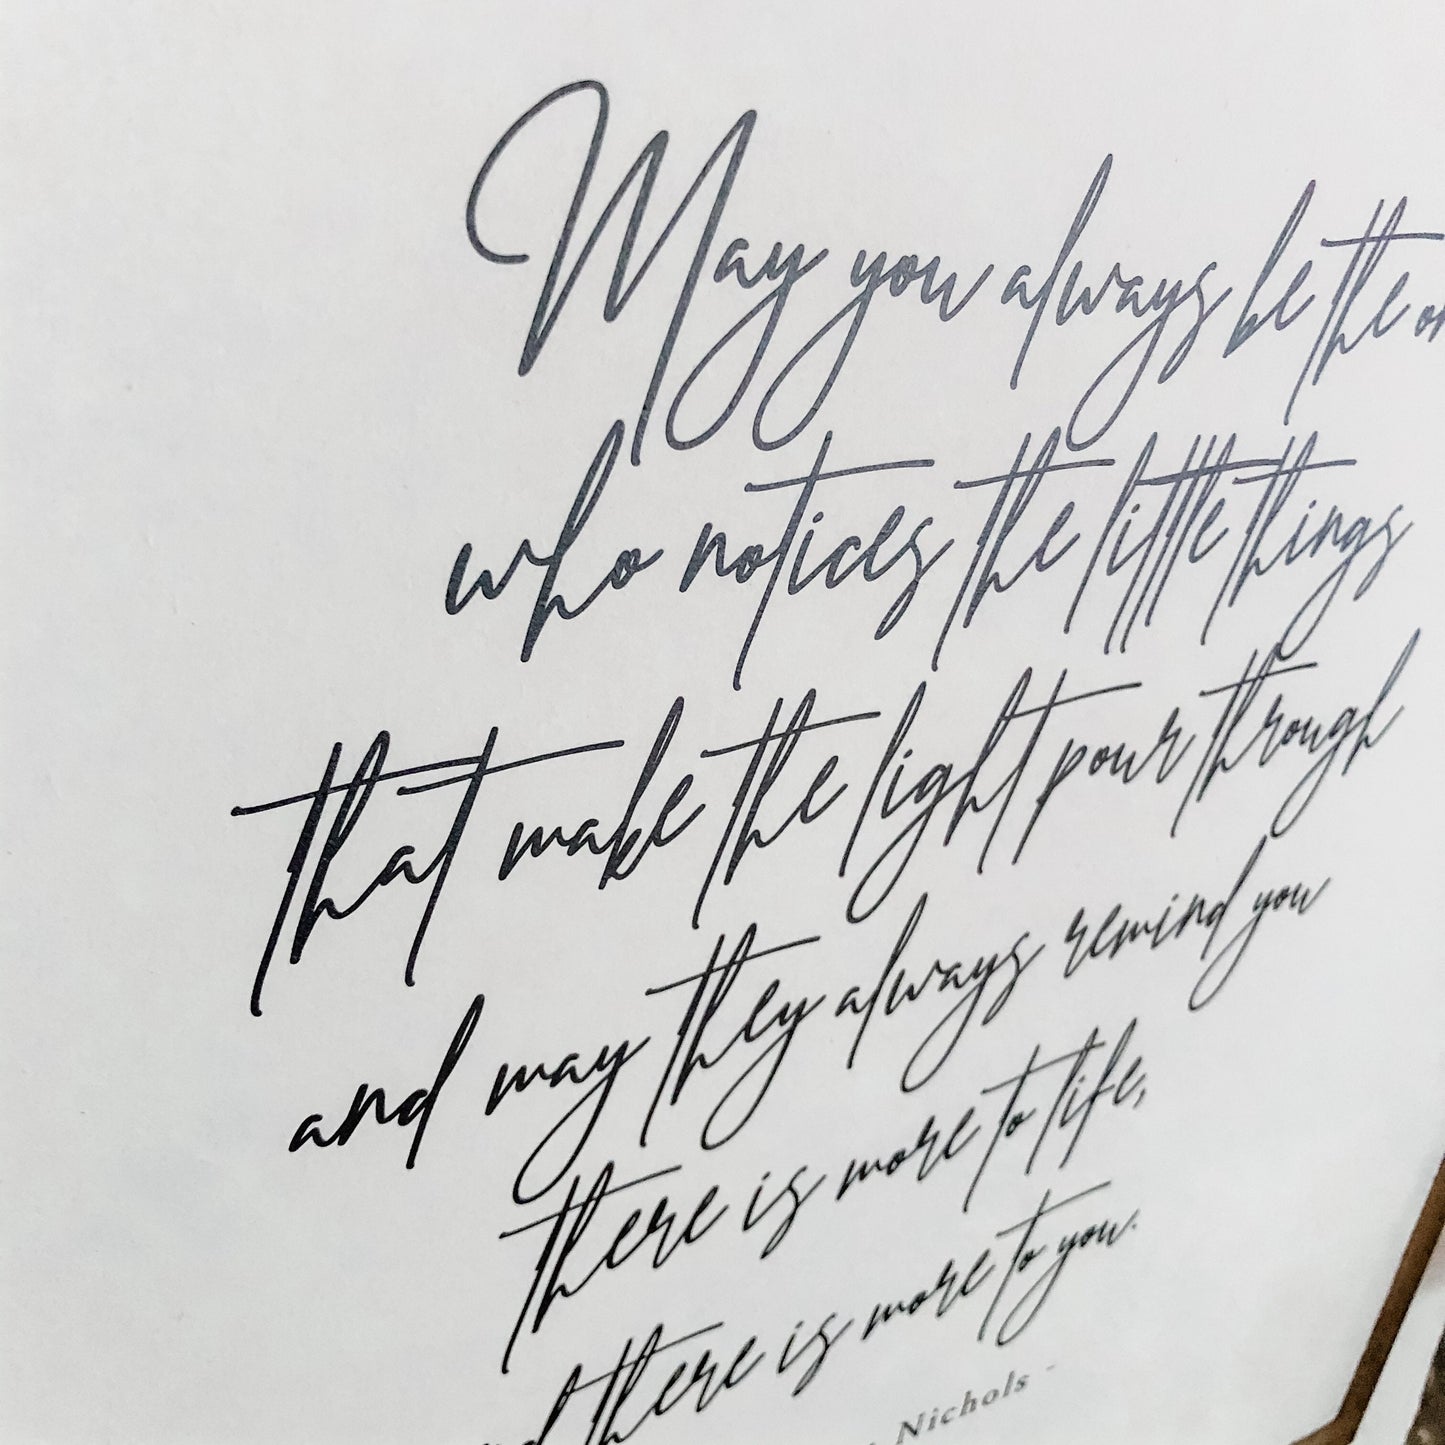 May you always be the
who notices the little things
that make the light pour through
and may they always remind you
there is more to life,
there is more to you.
Nichols -